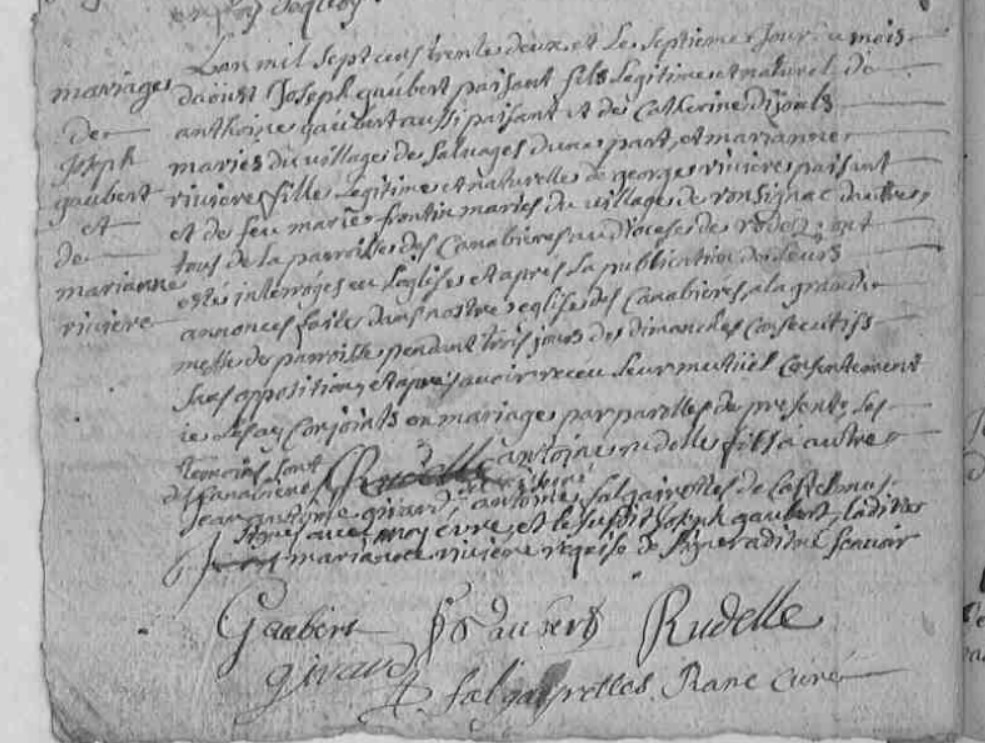 mariage
de
Joseph
gaubert
et
de
marianne
riviere
Lan mil sept cens trente deux et le septieme jour du mois
daoust Joseph gaubert paisant fils legitime et naturel de
anthoine gaubert aussi paisant et de Catherine
mariés du village de salvages dune part, et marianne
riviere fille legitime et naturelle de georges riviere paisant
et de feu marie frontin mariés du village de ronsignac dautre,
tous de la parroisse des Canabieres au diocese de rodez; ont
estés interrogés en leglise et apres la publication de leurs
annonces faite dans nostre eglise des Canabieres, a la grande
messe de parroisse pendant trois jours de dimanches consecutifs
sans opposition, et apres avoir receu leur mutuel consentement
je les ay conjoints en mariage par parolles de presente, les
temoins sont antoine rudelle fils a autre
des Canabieres
Jean antoine girard, antoine salgairolles de Castelmus
signes avec moy curé et le susdit Joseph gaubert, ladite
marianne riviere requise de signer a dit ne scavoir
Gaubert Gaubert Rudelle
girard salgayrolles Rane curé